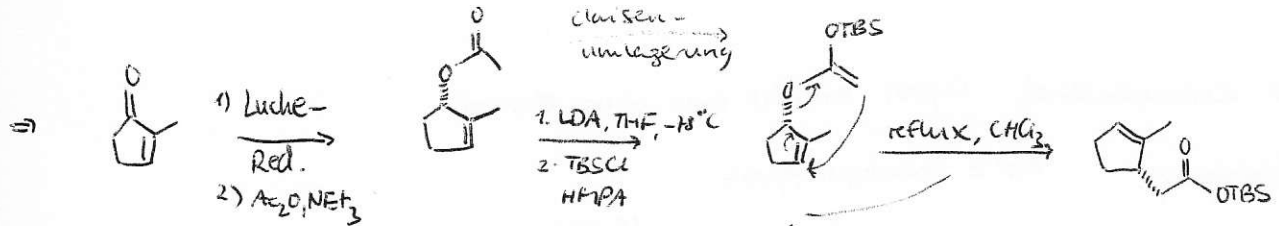 ⇒
O
1) Luche-
Red.
2) Ac₂O, NEt₃
O
O
Claisen-
umlagerung
1. LDA, THF, -78°C
2. TBSCl
HMPA
OTBS
O
reflux, CHCl₃
O
OTBS